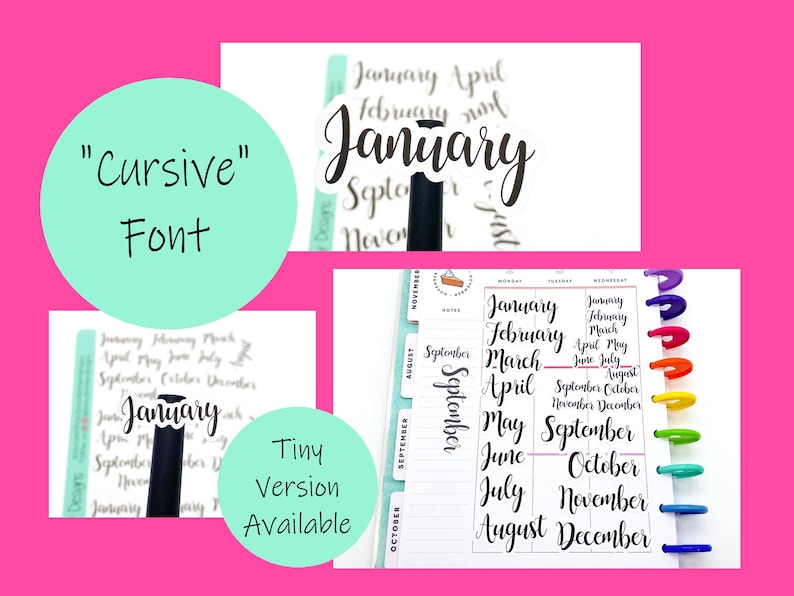 "Cursive"
Font
January April
February
January
September
November
August
Designs
January February March
April May June July
August
September October December
January
Designs
Tiny
Version
Available
MONDAY
TUESDAY
WEDNESDAY
NOVEMBER
NOTES
AUGUST
SEPTEMBER
OCTOBER
September
September
January
February
March
April
May
June
July
August
January
February
March
April May
June July
August
September October
November December
September
October
November
December